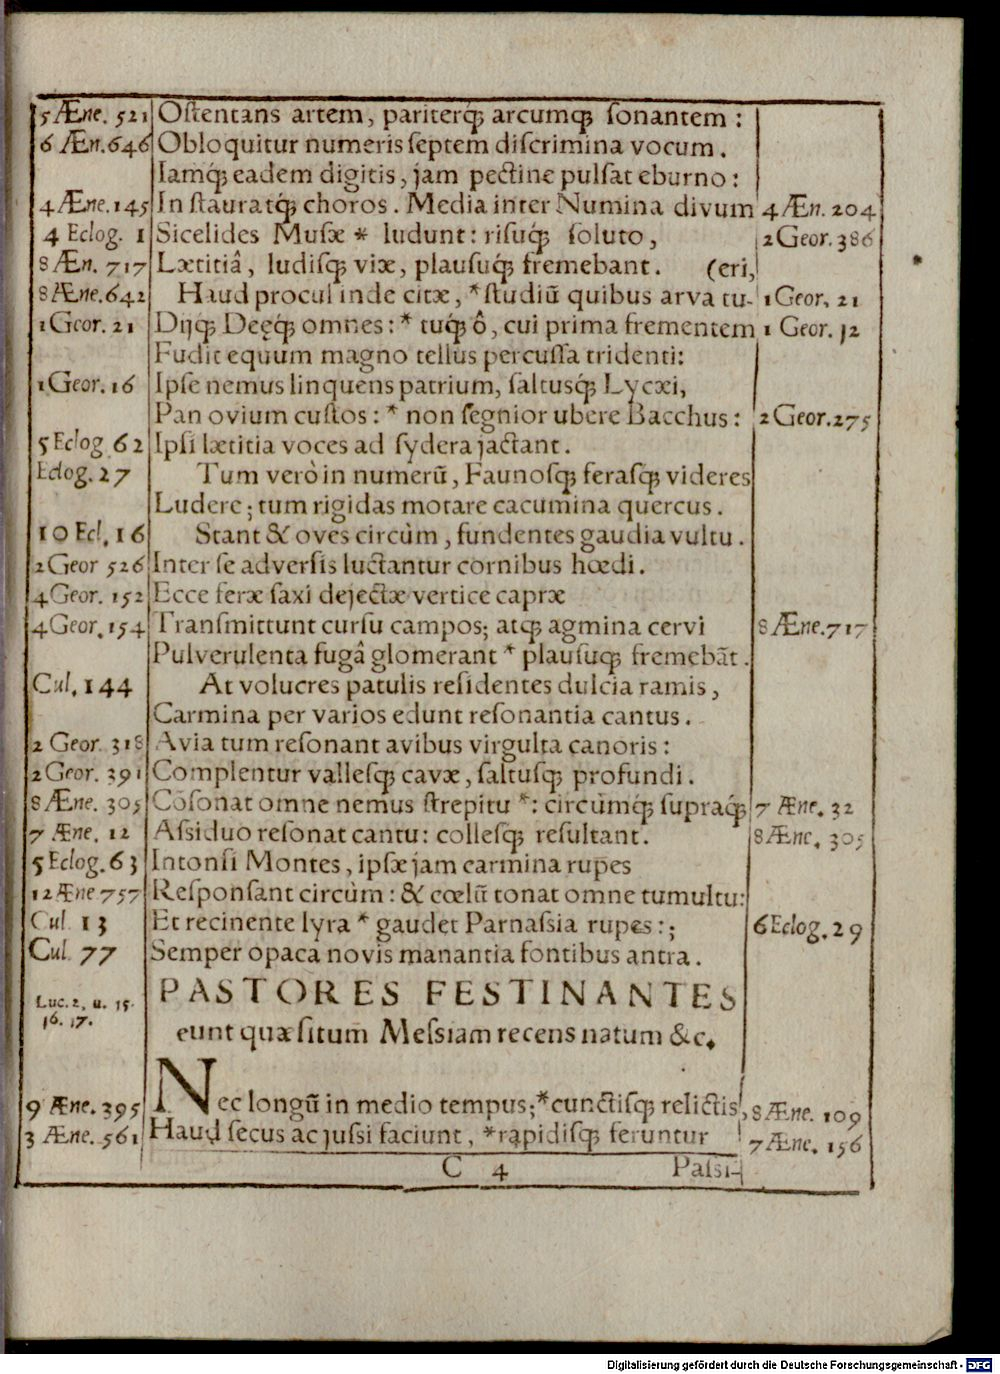 5 Æne. 521 Ostentans artem, pariterq́; arcumq́; sonantem :
6 Æn. 646 Obloquitur numeris septem discrimina vocum .
Iamq́; eadem digitis, jam pectine pulsat eburno :
4 Æne. 145 Instauratq́; choros . Media inter Numina divum 4 Æn. 204
4 Eclog. 1 Sicelides Musæ * ludunt : risuq́; soluto , 2 Geor. 386
8 Æn. 717 Lætitiâ, ludisq́; viæ, plausuq́; fremebant . (eri,
8 Æne. 642 Haud procul inde citæ , * studiū quibus arva tu- 1 Geor. 21
1 Geor. 21 Dijq́; Deęq́; omnes : * tuq́; ô, cui prima frementem 1 Geor. 12
Fudit equum magno tellus percussa tridenti:
1 Geor. 16 Ipse nemus linquens patrium, saltusq́; Lycæi,
Pan ovium custos : * non segnior ubere Bacchus : 2 Geor. 275
5 Eclog 62 Ipsi lætitia voces ad sydera jactant .
Eclog. 27 Tum verò in numerū, Faunosq́; ferasq́; videres
Ludere ; tum rigidas motare cacumina quercus .
10 Ecl. 16 Stant & oves circùm , fundentes gaudia vultu .
2 Geor 526 Inter se adversis luctantur cornibus hœdi .
4 Geor. 152 Ecce feræ saxi dejectæ vertice capræ
4 Geor. 154 Transmittunt cursu campos; atq́; agmina cervi 8 Æne. 717
Pulverulenta fugâ glomerant * plausuq́; fremebāt .
Cul. 144 At volucres patulis residentes dulcia ramis ,
Carmina per varios edunt resonantia cantus .
2 Geor. 318 Avia tum resonant avibus virgulta canoris :
2 Geor. 391 Complentur vallesq́; cavæ, saltusq́; profundi .
8 Æne. 305 Cōsonat omne nemus strepitu * : circùmq́; supraq́; 7 Æne. 32
7 Æne. 12 Assiduo resonat cantu : collesq́; resultant . 8 Æne. 305
5 Eclog. 63 Intonsi Montes , ipsæ jam carmina rupes
12 Æne 757 Responsant circùm : & cœlū tonat omne tumultu:
Cul. 13 Et recinente lyra * gaudet Parnassia rupes : ; 6 Eclog. 29
Cul. 77 Semper opaca novis manantia fontibus antra .
Luc. 2. u. 15. PASTORES FESTINANTES
16. 17. eunt quæsitum Messiam recens natum &c.
9 Æne. 395 Nec longū in medio tempus; * cunctisq́; relictis , 8 Æne. 109
3 Æne. 561 Haud secus ac jussi faciunt , * rapidisq́; feruntur 7 Æne. 156
C 4 Passi-
Digitalisierung gefördert durch die Deutsche Forschungsgemeinschaft - DFG